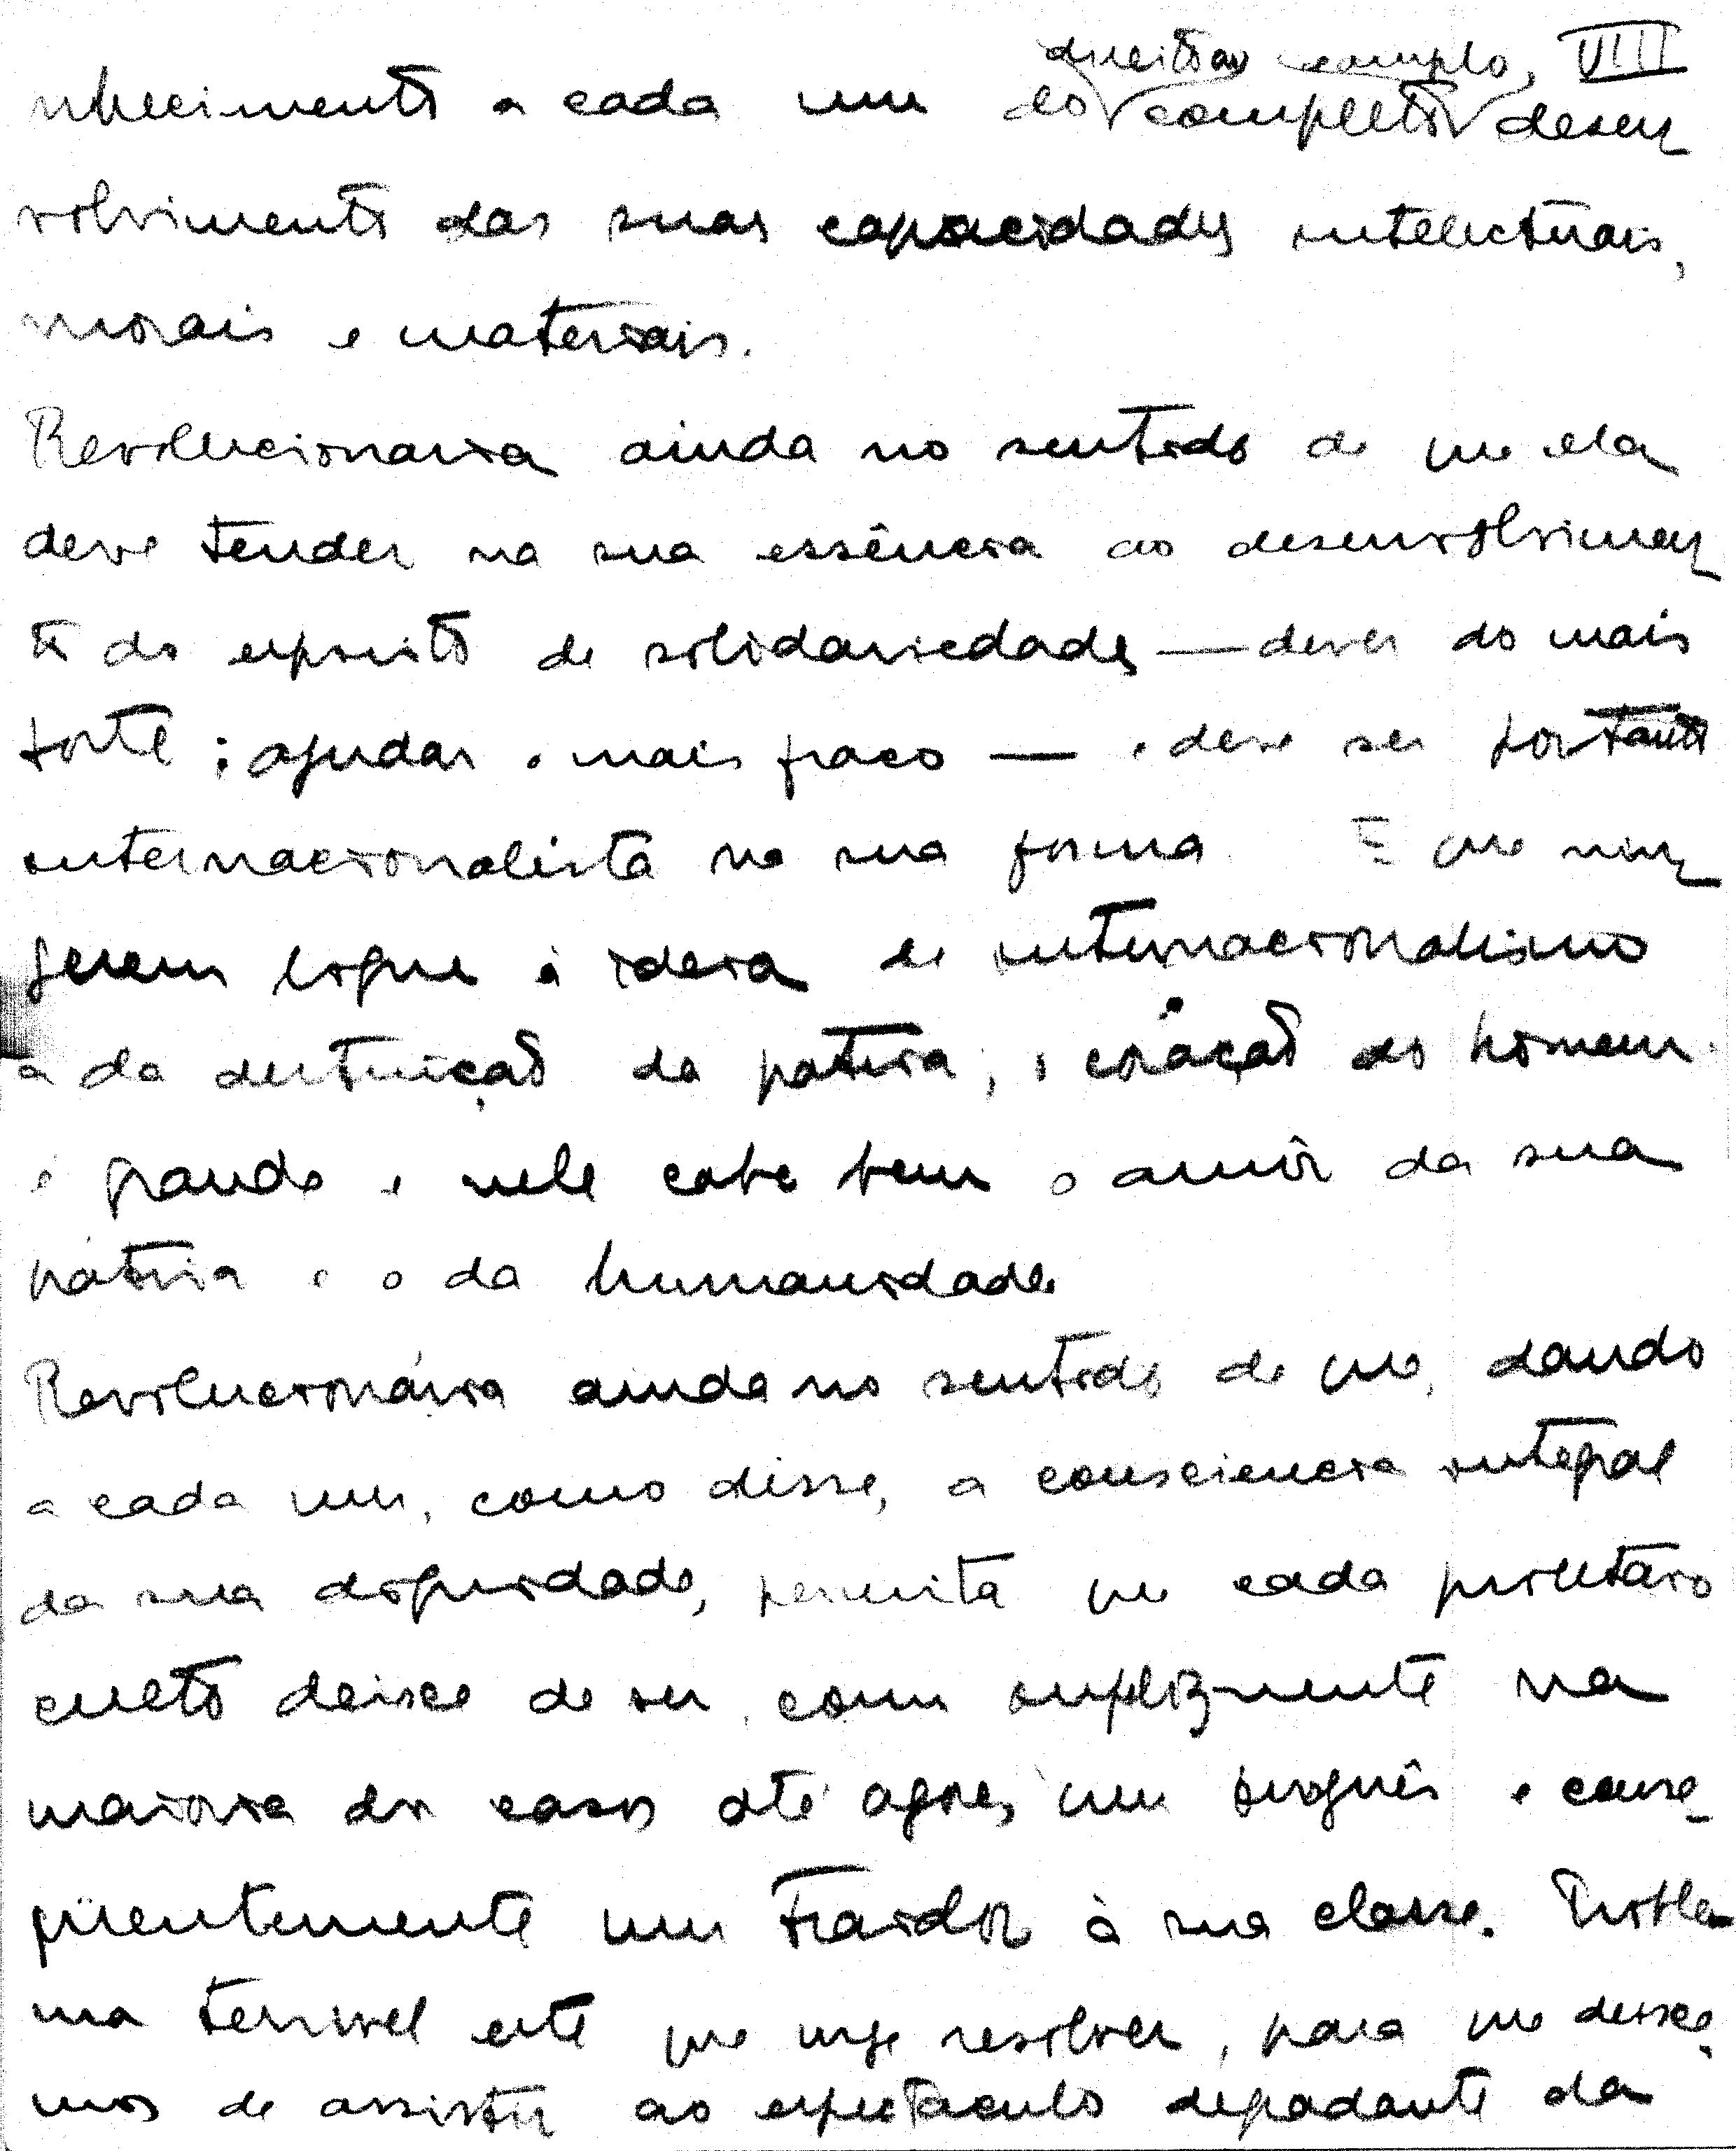 direito ao completo, VIII
nhecimento a cada um do completo desen-
volvimento das suas capacidades intelectuais,
morais e materiais.
Revolucionaria ainda no sentido de que ela
deve tender na sua essência ao desenvolvimen-
to do espirito de solidariedade — dever do mais
forte: ajudar o mais fraco — e deve ser portanto
internacionalista na sua forma. E que nin-
guem ligue á ideia de internacionalismo
a da destruiçaõ da patria; o coraçaõ do homem
é grande e nele cabe bem o amôr da sua
pátria e o da humanidade
Revolucionária ainda no sentido de que, dando
a cada um, como disse, a consciencia integral
da sua dignidade, permita que cada proletário
culto deixe de ser, como infelizmente na
maioria dos casos até agora, um burguês e conse-
qüentemente um traidor à sua classe. Proble-
ma terrivel este que urge resolver, para que deixe-
mos de assistir ao espectaculo degradante da